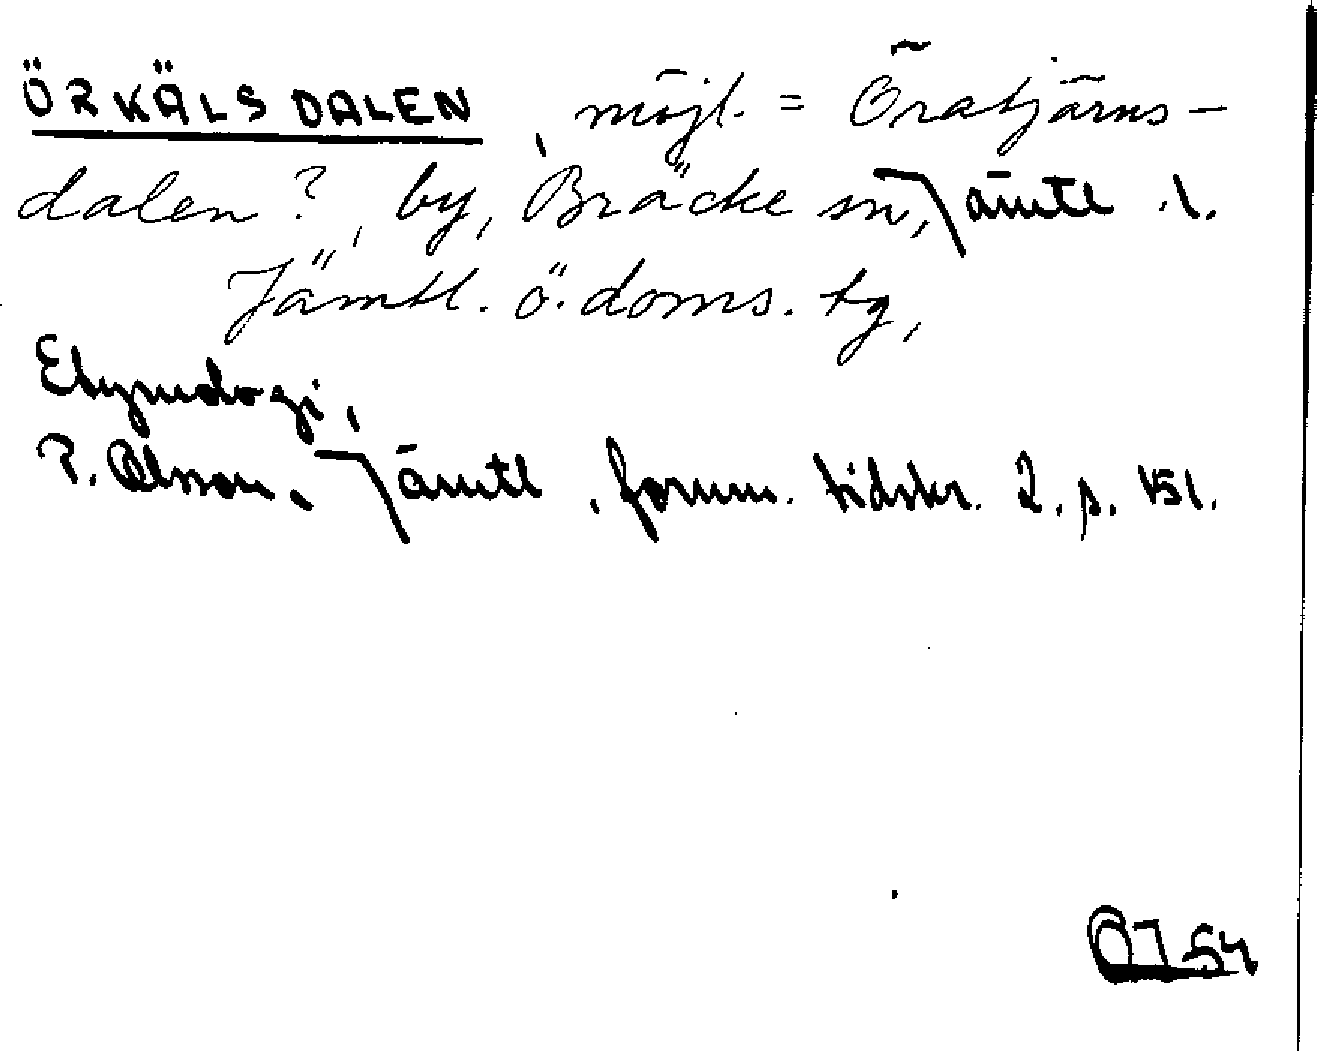 ÖRKÄLSDALEN, möjl. = Öratjärns-
dalen?, by, Bräcke sn, Jämtl. l.
Jämtl. ö. doms. tg,
Etymologi,
P. Olsson. Jämtl. fornm. tidskr. 2. p. 151.
OJ 54